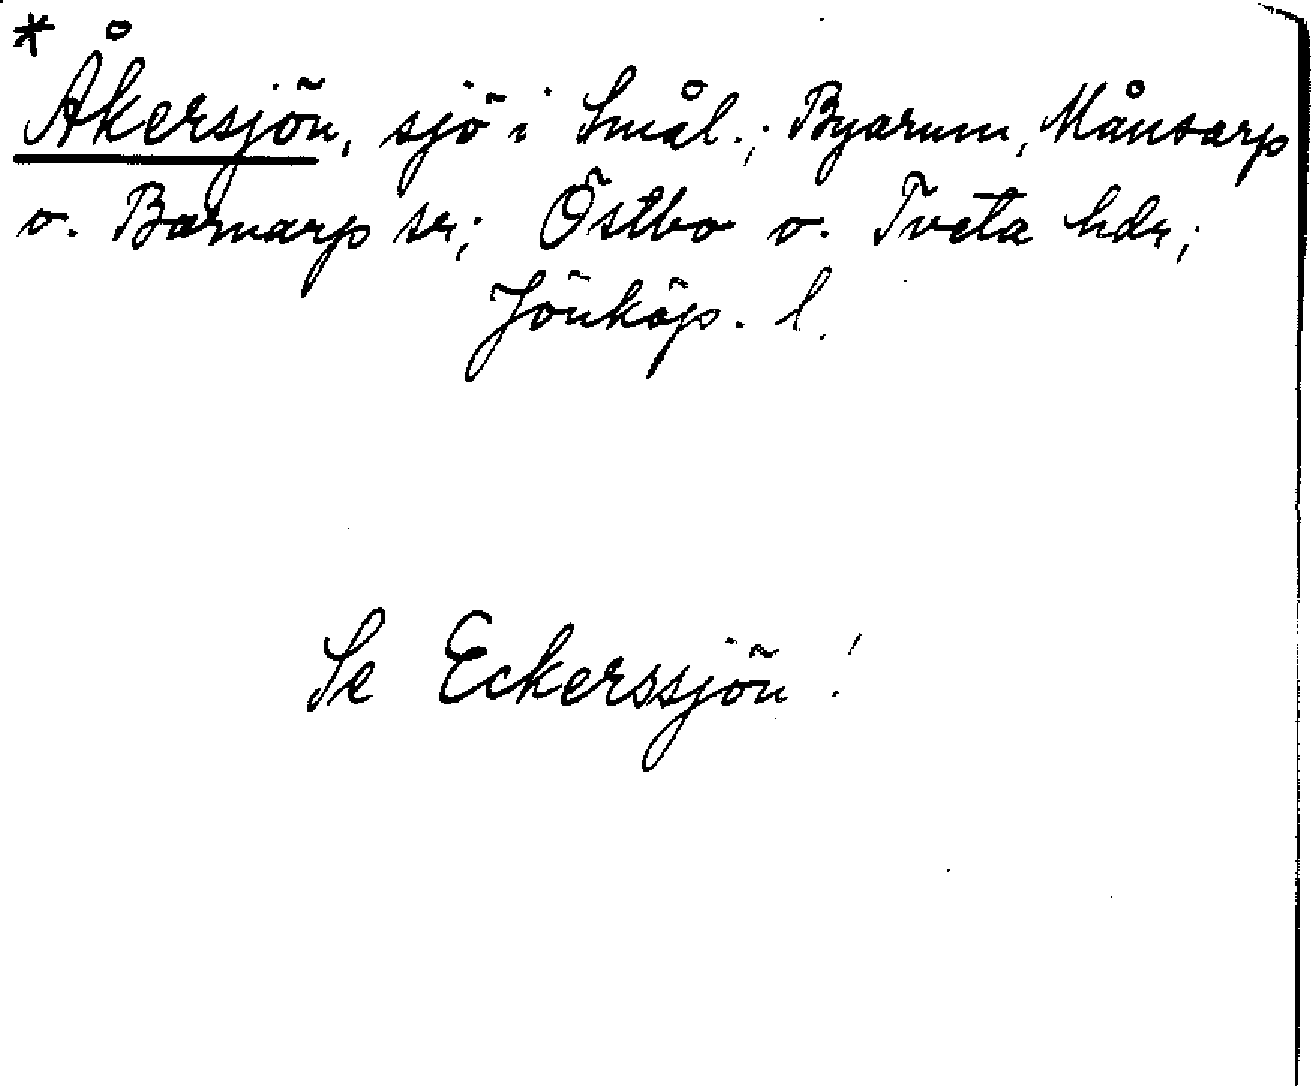 * Åkersjön, sjö i Smål.; Byarum, Månsarp
o. Barnarp sr; Östbo o. Tveta hdr;
Jönköp. l.
Se Eckerssjön!